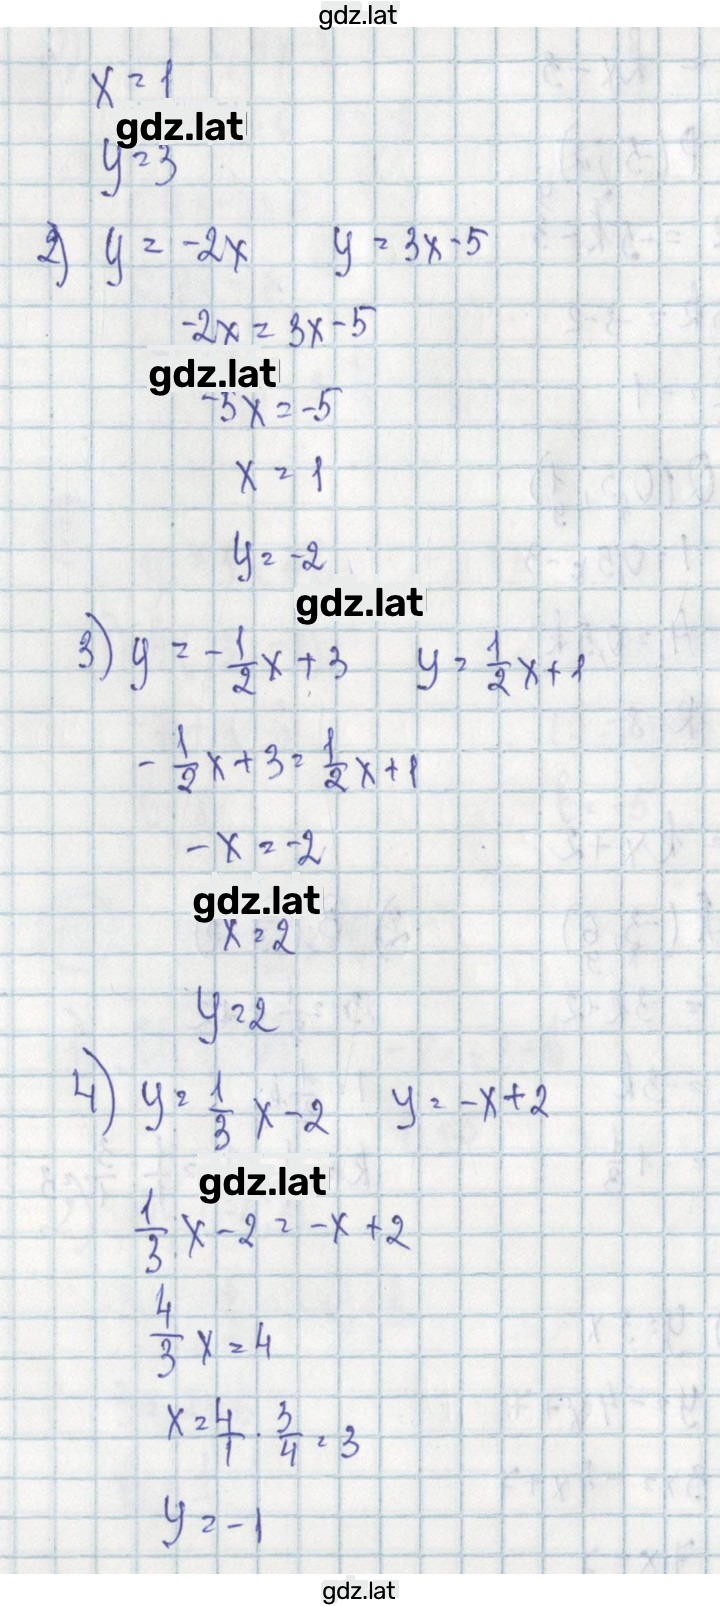 gdz.lat
x = 1
gdz.lat
y = 3
2) y = -2x y = 3x - 5
-2x = 3x - 5
gdz.lat
-5x = -5
x = 1
y = -2
gdz.lat
3) y = -1/2 x + 3 y = 1/2 x + 1
-1/2 x + 3 = 1/2 x + 1
-x = -2
gdz.lat
x = 2
y = 2
4) y = 1/3 x - 2 y = -x + 2
gdz.lat
1/3 x - 2 = -x + 2
4/3 x = 4
x = 4/1 · 3/4 = 3
y = -1
gdz.lat